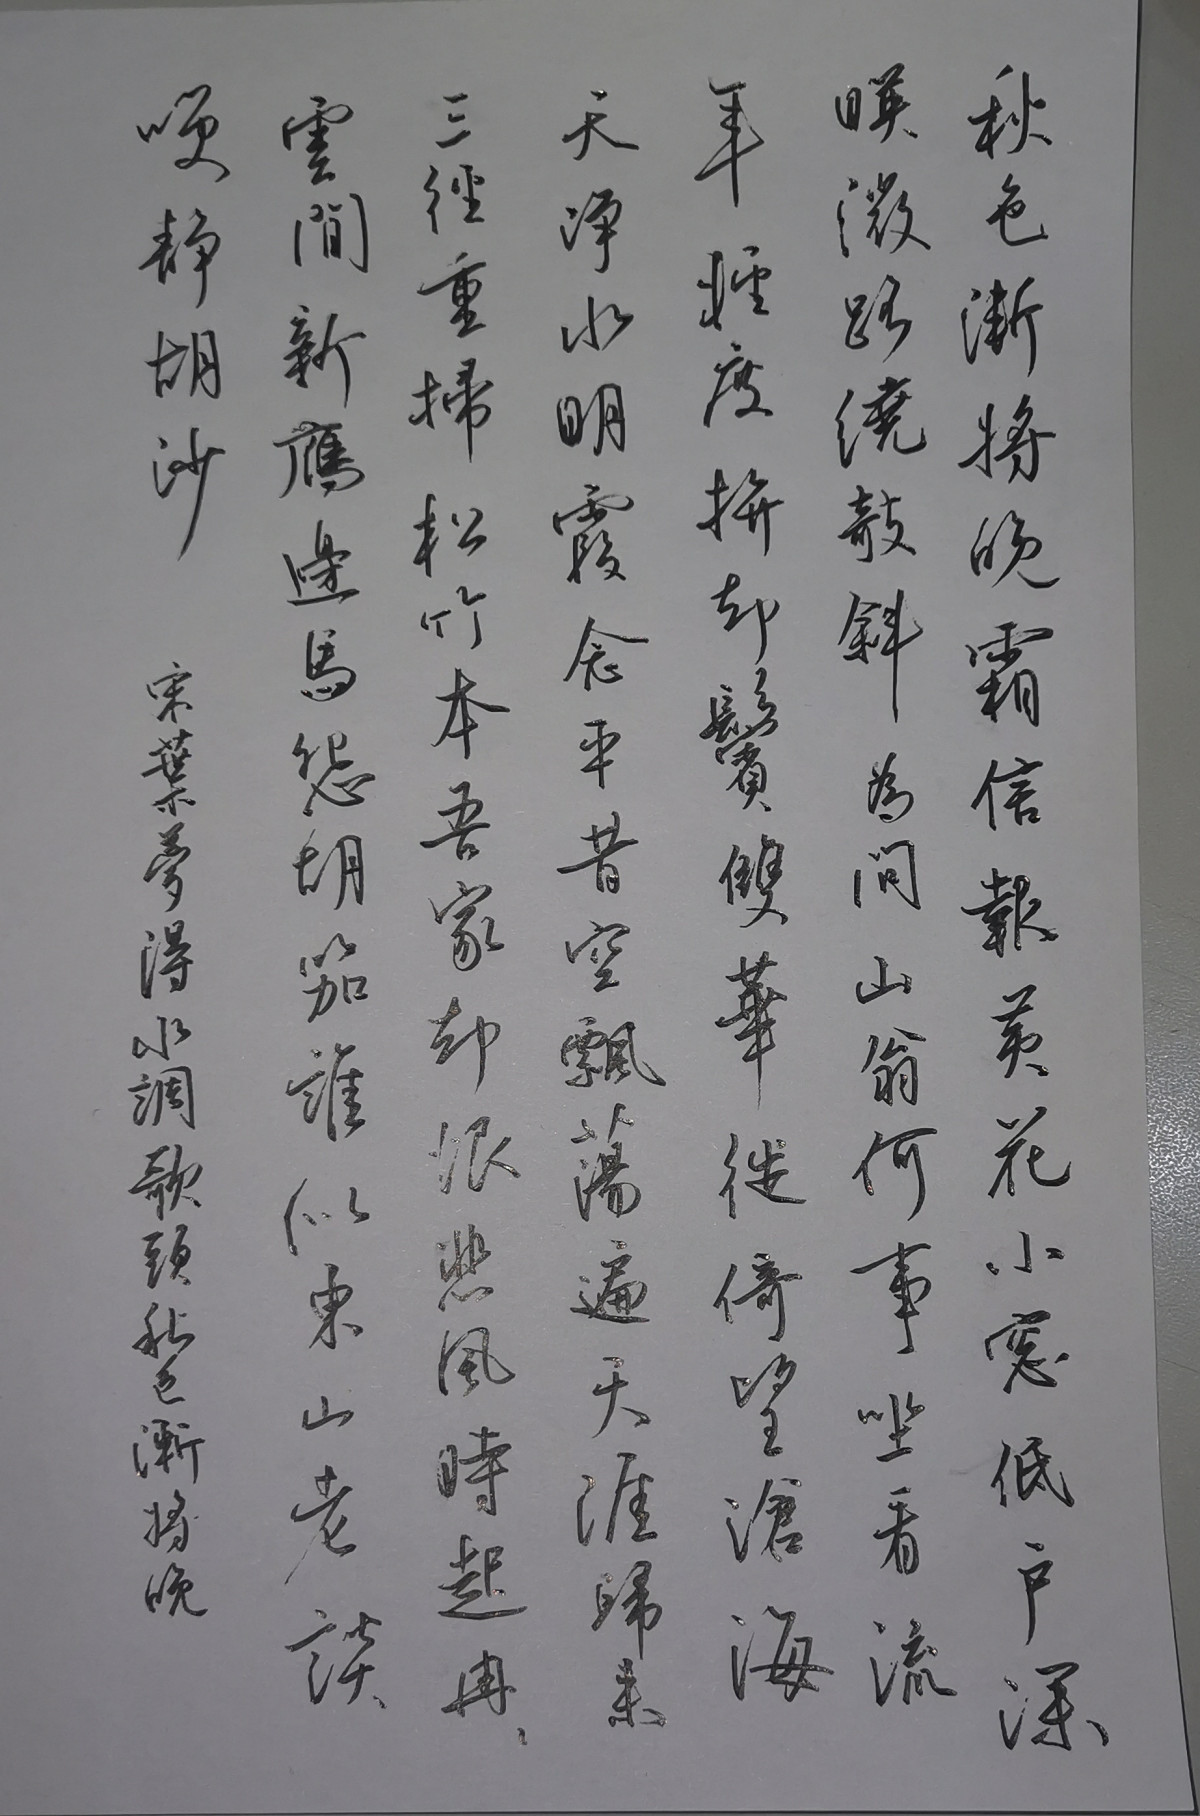 秋色漸將晚霜信報黃花小窓低户深
暎微路繞敧斜為問山翁何事坐看流
年輕度拚却鬢雙華徙倚望滄海
天淨水明霞念平昔空飄蕩遍天涯歸来
三徑重掃松竹本吾家却恨悲風時起冉々
雲間新鴈邊馬怨胡笳誰似東山老談
咲靜胡沙
宋葉夢得水調歌頭秋色漸將晚